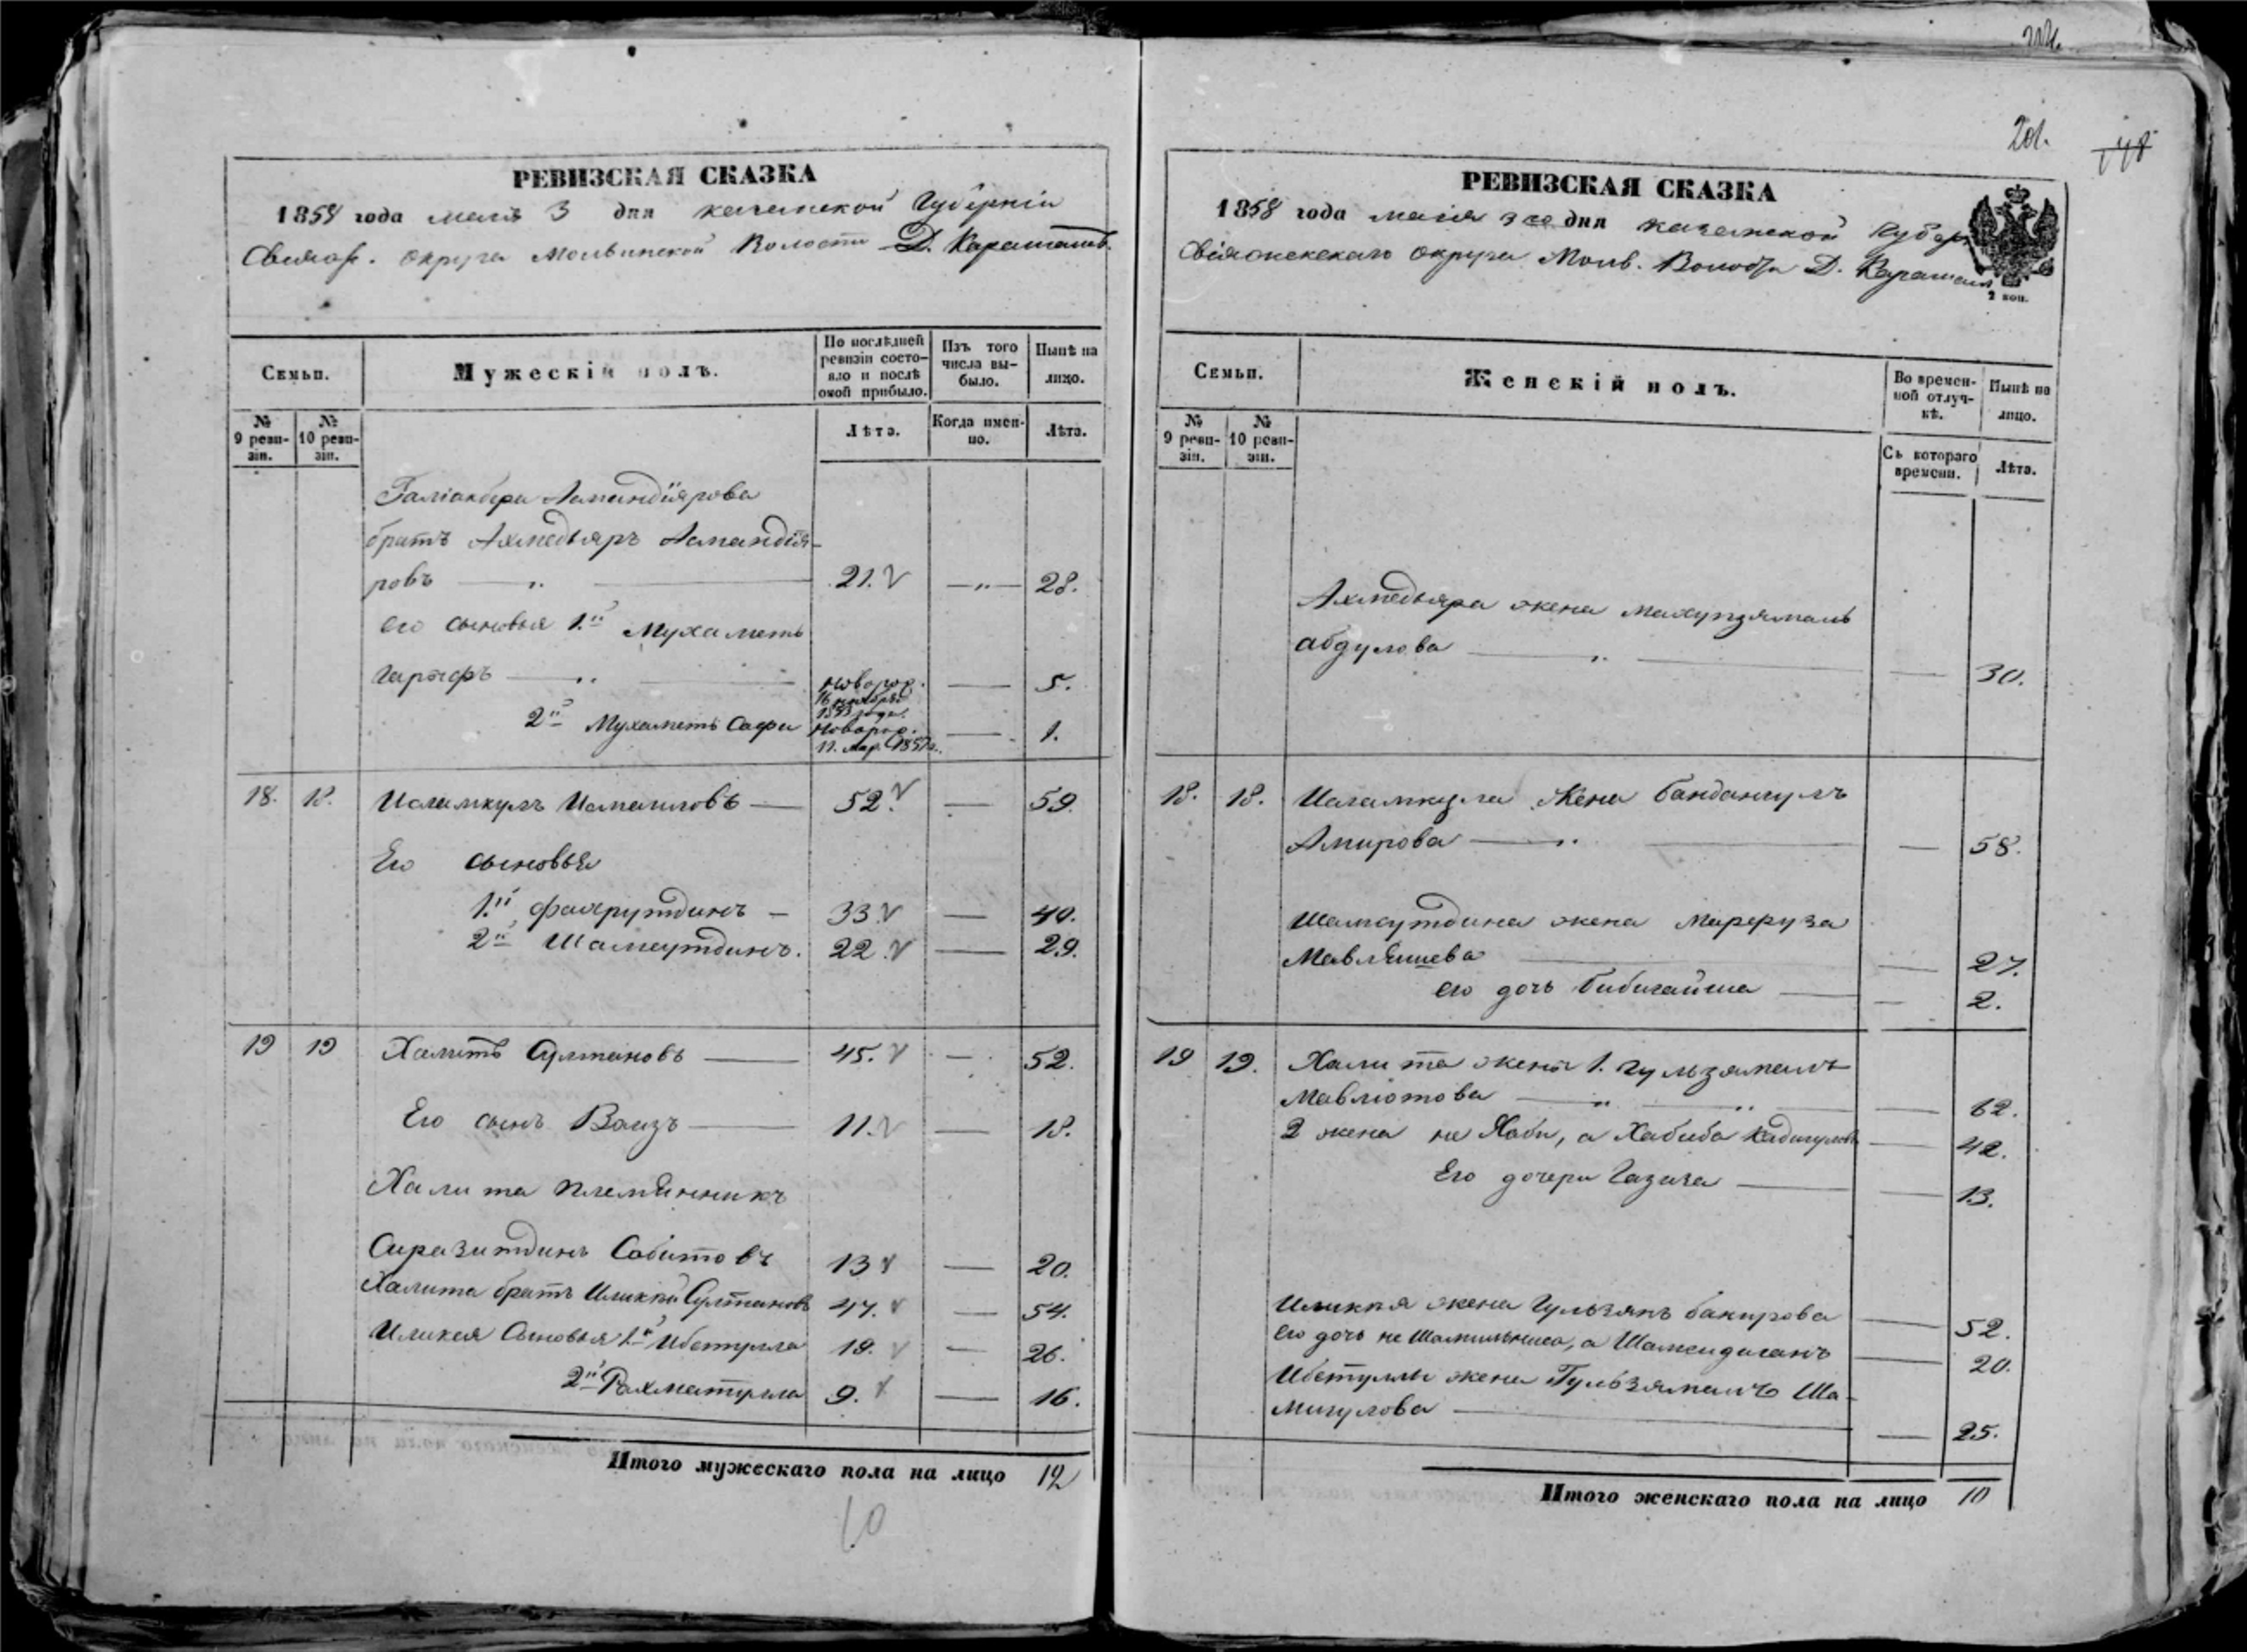 РЕВИЗСКАЯ СКАЗКА
1858 года маія 3 дня казанской Губерніи
Свіяж. округа Мольвинской Волости Д. Карашамъ
Семьи.
Мужескій полъ.
По послѣдней ревизіи состояло и послѣ оной прибыло.
Изъ того числа выбыло.
Нынѣ на лицо.
№ 9 ревизіи.
№ 10 ревизіи.
Лѣта.
Когда именно.
Лѣта.
Галіакбера Амандіярова
братъ Ахмедьяръ Амандія-
ровъ — „ — 21. — „ — 28.
его сыновья 1й Мухаметъ
Гарифъ — „ — новорож. — 5.
16 ноября
1853 года.
2й Мухаметъ Сафа новорож. — 1.
11. мар. 1857 г.
18. 18. Исламкулъ Исмаиловъ — 52. — 59.
Его сыновья
1й Фахрутдинъ — 33. — 40.
2й Шамсутдинъ. 22. — 29.
19 19 Халитъ Султановъ — 45. — 52.
Его сынъ Ваизъ — 11. — 18.
Халита племянникъ
Сиразитдинъ Сабитовъ 13 — 20.
Халита братъ Иликей Султановъ 47. — 54.
Иликея Сыновья 1й Ибетулла 19. — 26.
2й Рахматулла 9. — 16.
Итого мужескаго пола на лицо 12
10
201.
148
РЕВИЗСКАЯ СКАЗКА
1858 года маія 3го дня казанской Губер
Свіяжскаго округа Мольв. Волости Д. Карашам
2 коп.
Семьи.
Женскій полъ.
Во временной отлучкѣ.
Нынѣ на лицо.
№ 9 ревизіи.
№ 10 ревизіи.
Съ котораго времени.
Лѣта.
Ахмедьяра жена Махупзямаль
абдулова — „ — 30.
18. 18. Исламкула Жена бандангулъ
Амирова — „ — 58.
Шамсутдина жена Марфуза
Мавляшева — 27.
его дочь бибигайша — 2.
19 19. Халита жены 1. Гульзямалъ
Мавлютова — „ — „ — 62.
2 жена не Хаби, а Хабиба Кадыгулова — 42.
Его дочери Газиза — 13.
Иликея жена Гульзянъ бакирова — 52.
его дочь не Шамильниса, а Шамсиджиганъ — 20.
Ибетуллы жена Гульзямалъ Ша-
мигулова — 25.
Итого женскаго пола на лицо 10